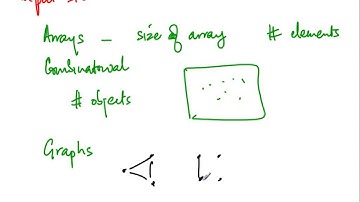 Arrays - size of array # elements
Combinatorial
# objects
Graphs